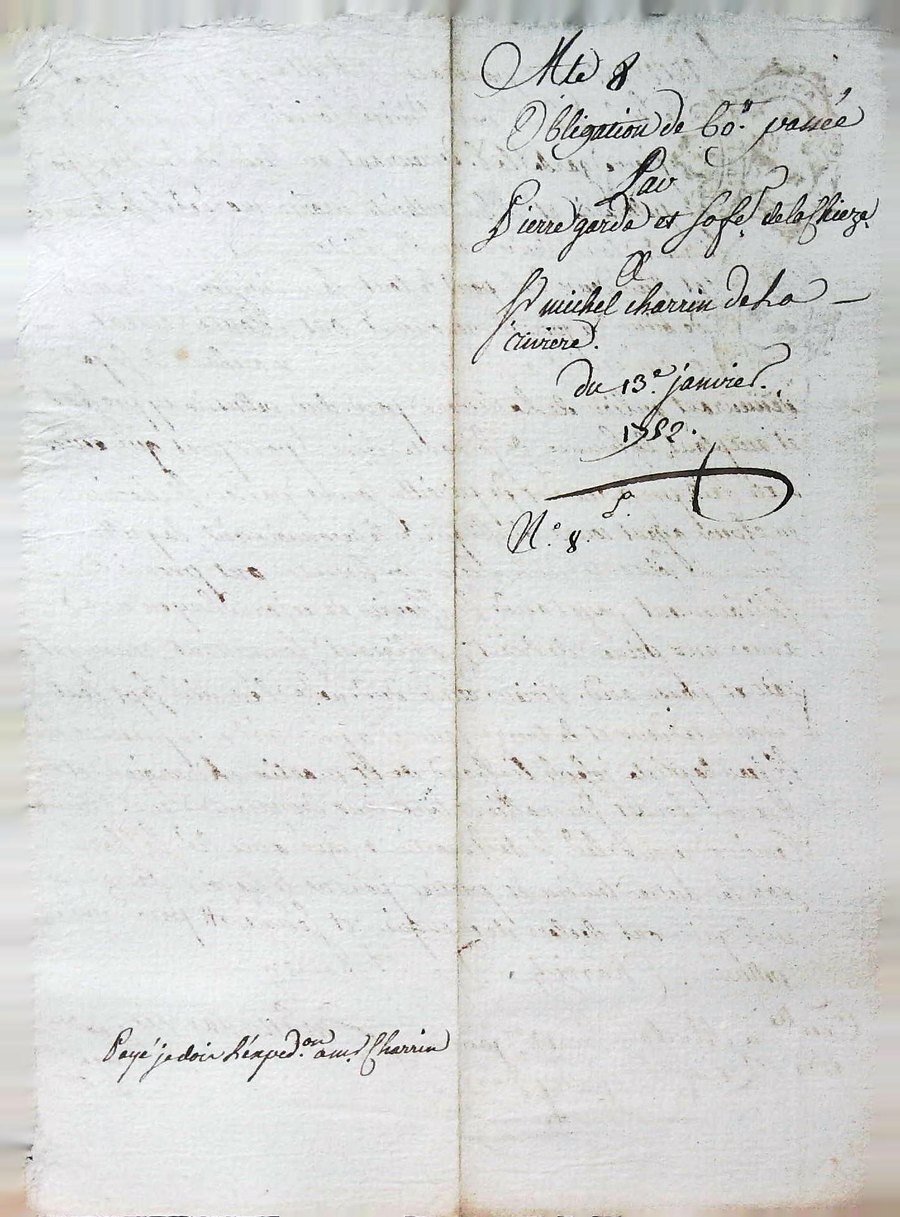 Mte 8
Obligation de 60.tt passée
Par
Pierre garde et Sa fe. de la Chieze
A
Sr michel charrin de La
riviere.
du 13.e janvier.
1752.
N.o 8.
Payé je doir L'exped.on a mr. Charrin